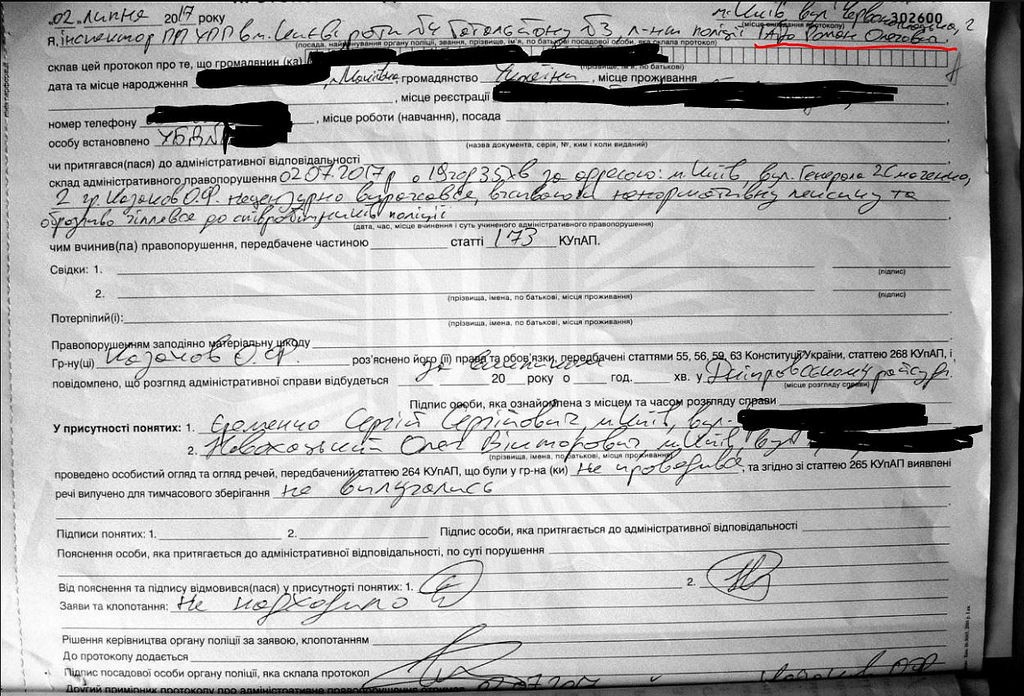 02 липня 2017 року м. Київ вул. 302600
(місце складання протоколу)
Я, інспектор ПП УПП в м. Києві роти №4 батальйону №3 л-нт поліції Роман Олегович
(посада, найменування органу поліції, звання, прізвище, ім'я, по батькові посадової особи, яка склала протокол)
склав цей протокол про те, що громадянин (ка)
(прізвище, ім'я, по батькові)
дата та місце народження громадянство Україна, місце проживання
, місце реєстрації
номер телефону , місце роботи (навчання), посада
особу встановлено УБД №
(назва документа, серія, №, ким і коли виданий)
чи притягався(лася) до адміністративної відповідальності
склад адміністративного правопорушення 02.07.2017 р о 19 год 35 хв за адресою: м. Київ вул. Генерала
2 гр. Казаков О.Ф. нецензурно виражався, висловлював ненормативну лексику та
образливо чіплявся до співробітників поліції
(дата, час, місце вчинення і суть учиненого адміністративного правопорушення)
чим вчинив(ла) правопорушення, передбачене частиною статті 173 КУпАП.
Свідки: 1.
(підпис)
2.
(прізвища, імена, по батькові, місця проживання) (підпис)
Потерпілий(і):
(прізвища, імена, по батькові, місця проживання)
Правопорушенням заподіяно матеріальну шкоду
Гр-ну(ці) Казаков О.Ф. роз'яснено його (її) права та обов'язки, передбачені статтями 55, 56, 59, 63 Конституції України, статтею 268 КУпАП, і
повідомлено, що розгляд адміністративної справи відбудеться за викликом 20 року о год. хв. у Дніпровському райсуді
(місце розгляду справи)
Підпис особи, яка ознайомлена з місцем та часом розгляду справи
У присутності понятих: 1. Єременко Сергій Сергійович, м. Київ, вул.
2. Олег Вікторович, м. Київ, вул
(прізвища, імена, по батькові, місця проживання)
проведено особистий огляд та огляд речей, передбачений статтею 264 КУпАП, що були у гр-на (ки) не проводився, та згідно зі статтею 265 КУпАП виявлені
речі вилучено для тимчасового зберігання не вилучались
Підписи понятих: 1. 2. Підпис особи, яка притягається до адміністративної відповідальності
Пояснення особи, яка притягається до адміністративної відповідальності, по суті порушення
Від пояснення та підпису відмовився(лася) у присутності понятих: 1. 2.
Заяви та клопотання: не надходило
Рішення керівництва органу поліції за заявою, клопотанням
До протоколу додається
Підпис посадової особи органу поліції, яка склала протокол
Другий примірник протоколу про адміністративне правопорушення отримав 02.07.2017 Казаков О.Ф.